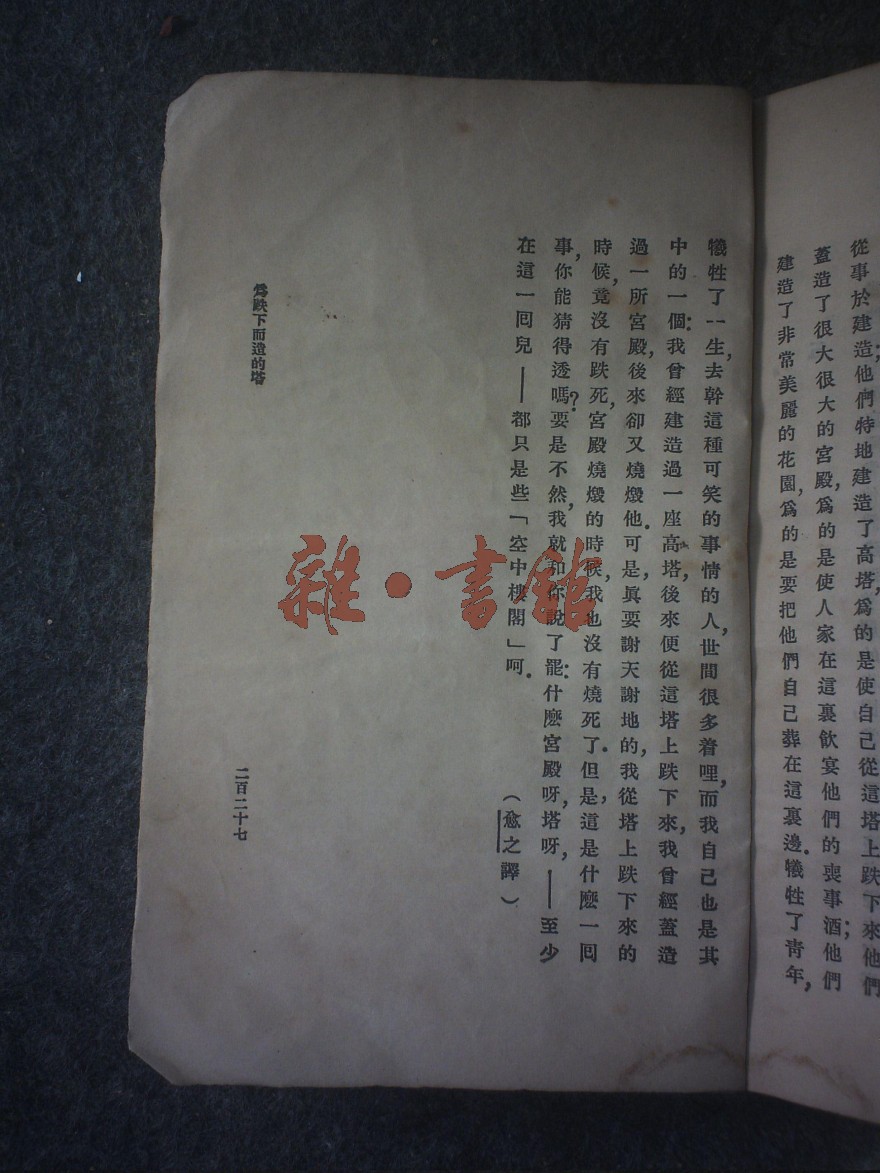 從事於建造;他們特地建造了高塔,爲的是使自己從這塔上跌下來他們
蓋造了很大很大的宮殿,爲的是使人家在這裏飮宴他們的喪事酒;他們
建造了非常美麗的花園,爲的是要把他們自己葬在這裏邊。犧牲了靑年,
犧牲了一生,去幹這種可笑的事情的人,世間很多着哩,而我自己也是其
中的一個:我曾經建造過一座高塔,後來便從這塔上跌下來,我曾經蓋造
過一所宮殿,後來卻又燒燬他。可是,眞要謝天謝地的,我從塔上跌下來的
時候,竟沒有跌死,宮殿燒燬的時候,我也沒有燒死了。但是,這是什麽一囘
事,你能猜得透嗎?要是不然,我就和你說了罷:什麽宮殿呀,塔呀,——至少
在這一囘兒——都只是些「空中樓閣」呵。
(愈之譯)
爲跌下而造的塔
二百二十七
雜·書館